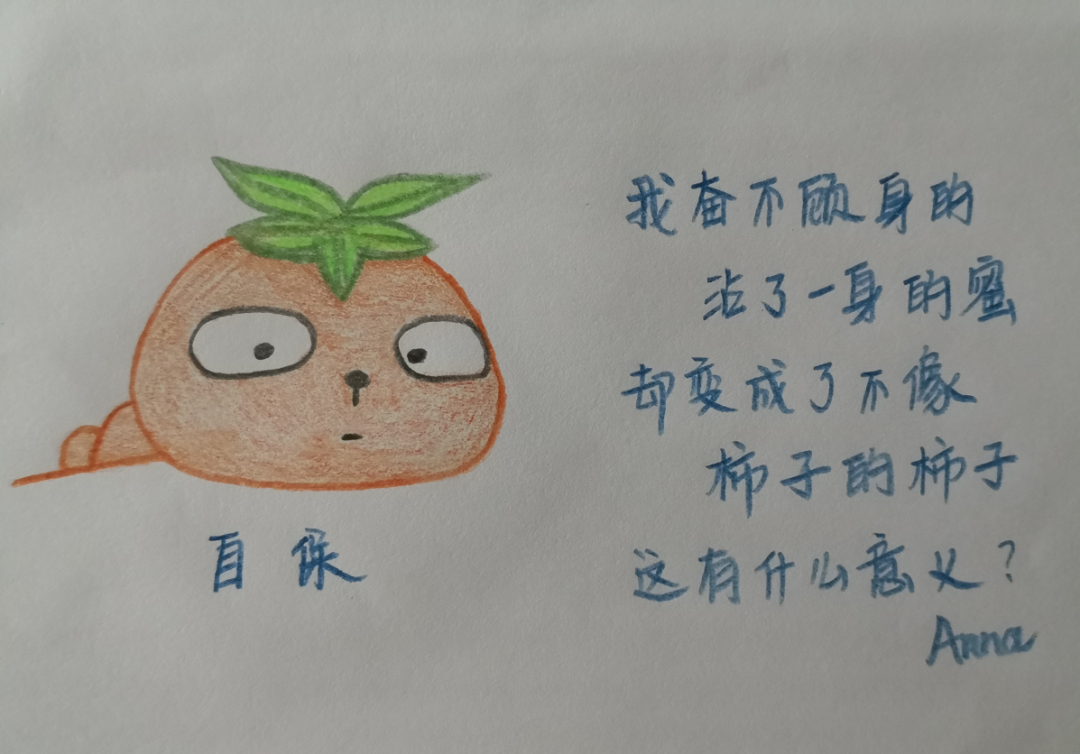 我奋不顾身的
沾了一身的蜜
却变成了不像
柿子的柿子
这有什么意义？
Anna
自保